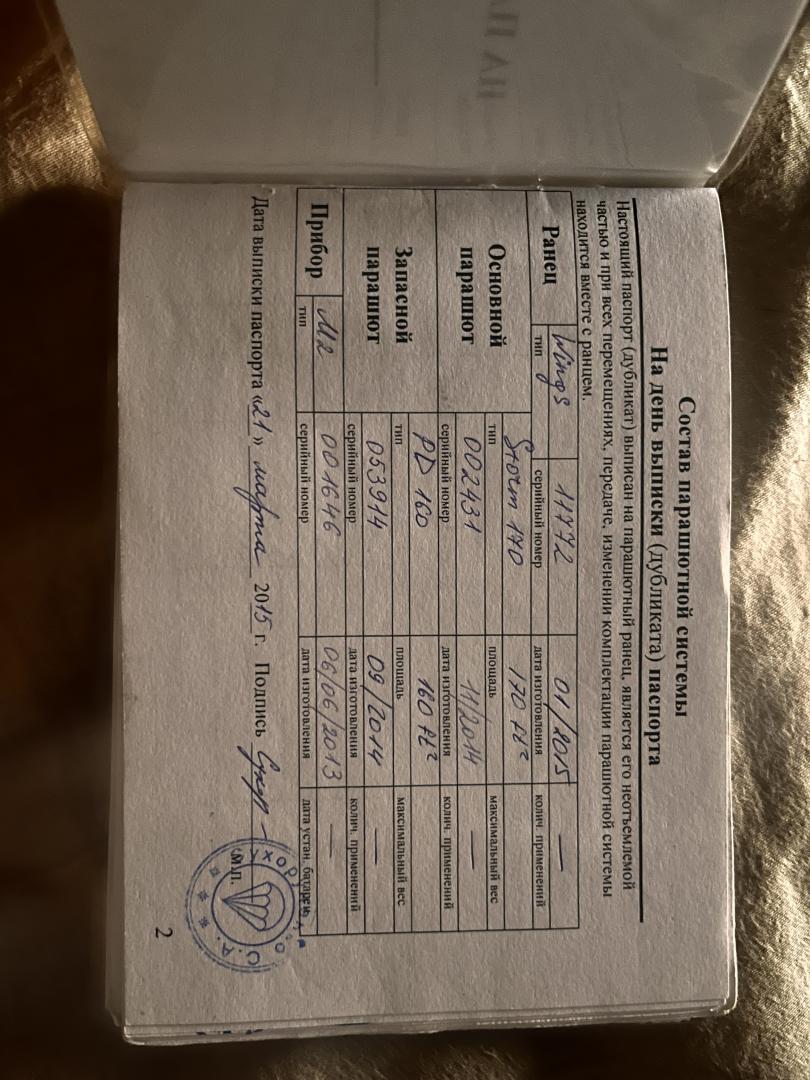 Состав парашютной системы
На день выписки (дубликата) паспорта
Настоящий паспорт (дубликат) выписан на парашютный ранец, является его неотъемлемой
частью и при всех перемещениях, передаче, изменении комплектации парашютной системы
находится вместе с ранцем.
Ранец Wings 11772 01/2015 —
тип серийный номер дата изготовления колич. применений
Основной парашют Storm 170 170 ft²
тип площадь максимальный вес
002431 11/2014 —
серийный номер дата изготовления колич. применений
Запасной парашют PD 160 160 ft²
тип площадь максимальный вес
053914 09/2014 —
серийный номер дата изготовления колич. применений
Прибор M2 001646 06/06/2013 —
тип серийный номер дата изготовления дата устан. батареи
Дата выписки паспорта «21» марта 2015 г. Подпись
М.П.
2